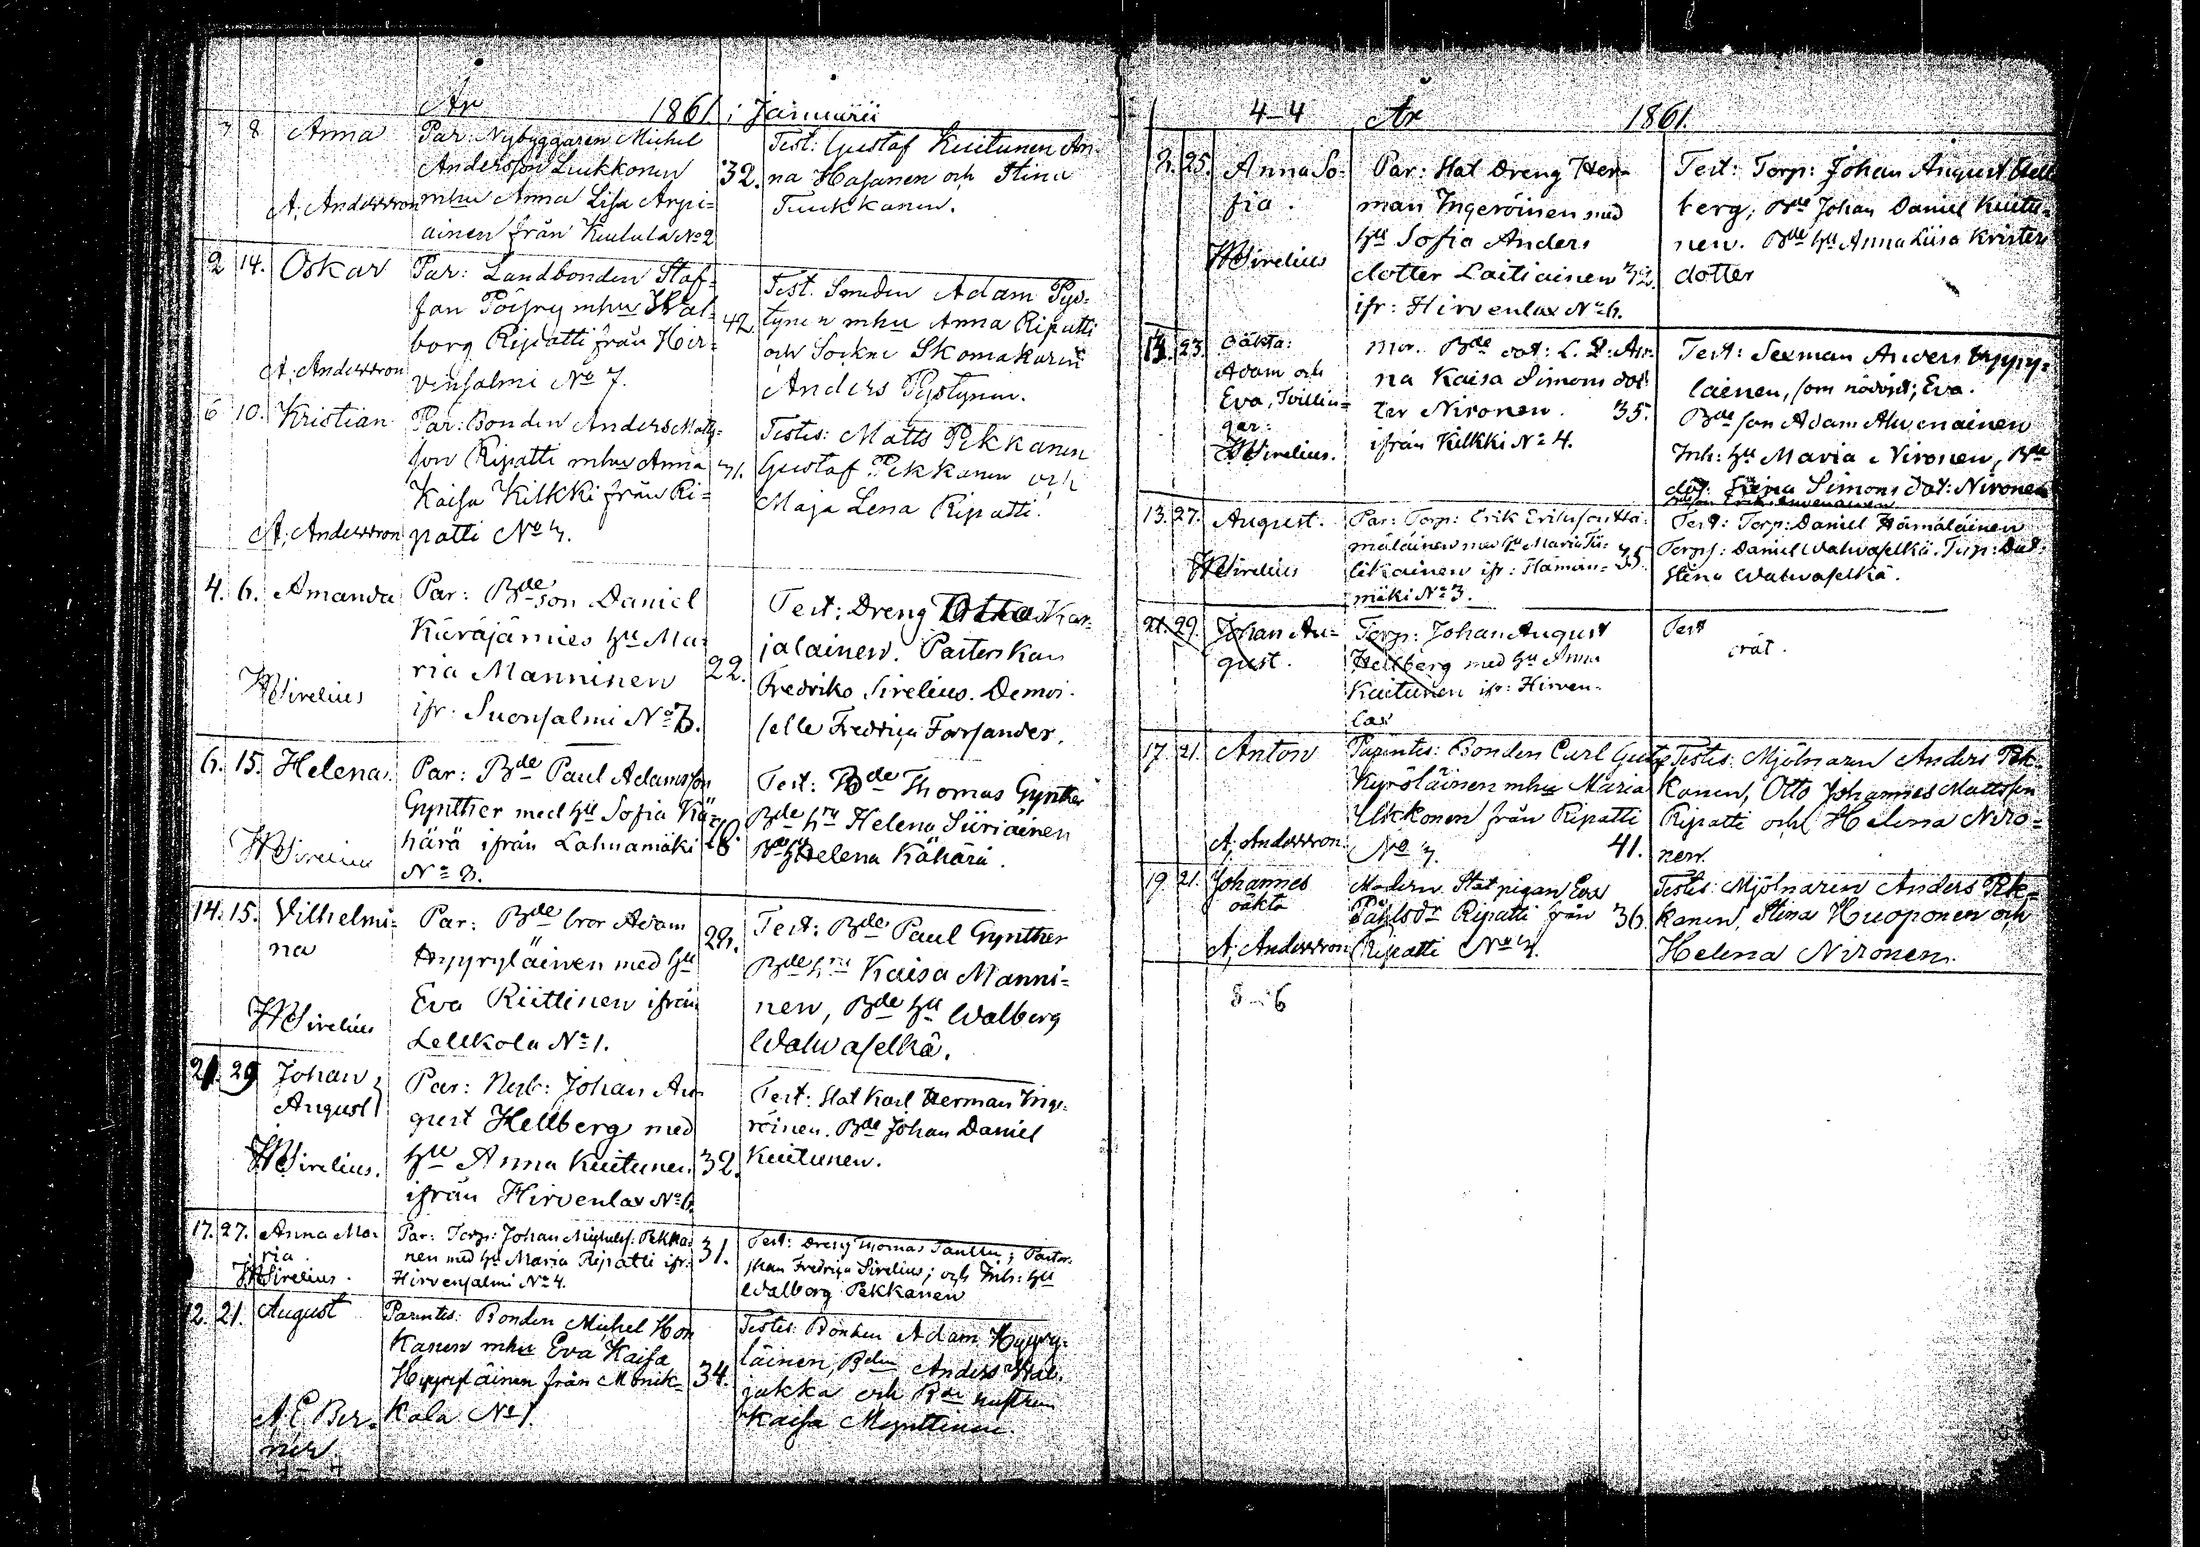 År 1861 i Januarii
7 8 Anna
Par: Nybyggaren Michel
Andersson Luukkonen
mhu Anna Lisa Arpi=
ainen från Kuutula No 2
32.
Test: Gustaf Kuitunen An-
na Hasanen och Stina
Tuukkanen.
A. Andersson
2 14. Oskar
Par: Landbonden Staf-
fan Pöyry mhu Wal-
borg Ripatti från Hir=
vensalmi No 7.
42.
Test. Smeden Adam Pys-
tynen mhu Anna Ripatti
och Sockne Skomakaren
Anders Pystynen.
A. Andersson
6 10. Kristian
Par: Bonden Anders Matts-
son Ripatti mhu Anna
Kaisa Kilkki från Ri=
patti No 7.
71.
Testis: Matts Pekkanen
Gustaf Pekkanen och
Maja Lena Ripatti.
A. Andersson
4. 6. Amanda
Par: Bde son Daniel
Käräjämies hu Ma-
ria Manninen
ifr. Suonsalmi No 7.
22.
Test: Dreng Otto Kar-
jalainen. Pastorskan
Fredrika Sirelius. Demoi-
selle Fredrica Forsander.
W Sirelius
6. 15. Helena.
Par: Bde Paul Adamsson
Gynther med hu Sofia Kä-
härä ifrån Lahnamäki
No 8.
28.
Test: Bde Thomas Gynther
Bde hu Helena Siiriäinen
Bde hu Helena Kähärä.
W Sirelius
14. 15. Vilhelmi-
na
Par: Bde bror Adam
Hypyläinen med hu
Eva Riittinen ifrån
Lellkola No 1.
28.
Test: Bde Paul Gynther
Bde hu Kaisa Manni=
nen, Bde hu Walberg
Wahvaselkä.
W Sirelius
21. 29 Johan
August
Par: Nyb: Johan Au-
gust Hellberg med
hu Anna Kuitunen
ifrån Hirvenlax No 6.
32.
Test: Stat Karl Herman Inge-
röinen. Bde Johan Daniel
Kuitunen.
W Sirelius.
17. 27. Anna Ma-
ria.
Par: Torp: Johan Michelss. Pekka-
nen med hu Maria Ripatti ifr:
Hirvensalmi No 4.
31.
Test: Dreng Thomas Tanttu; Pastor-
skan Fredrica Sirelius; och Inh: hu
Walborg Pekkanen
W Sirelius.
12. 21. August
Parentes: Bonden Michel Hon
kanen mhu Eva Kaisa
Hyyryläinen från Monik-
kala No 1.
34.
Testes: Bonden Adam Hyyry-
läinen, Bdn Anders Wal-
jakka och Bde hustrun
Kaisa Mynttinen.
A. E. Ber-
ner
4–4 År 1861.
2. 25. Anna So-
fia.
Par: Stat Dreng Her-
man Ingeröinen med
hu Sofia Anders
dotter Laitiainen 32.
ifr: Hirvenlax No 6.
Test: Torp: Johan August Hell
berg; Bde Johan Daniel Kuitu-
nen. Bde hu Anna Liisa Krister
dotter
W Sirelius
14. 23. Oäkta:
Adam och
Eva, Tvillin=
gar:
Mor. Bde dot: L. D: An-
na Kaisa Simons dot
ter Nironen. 35.
ifrån Kilkki No 4.
Test: Sexman Anders Hyppy-
läinen, som nödvist; Eva.
Bde son Adam Auvenainen
Inh: hu Maria Nironen, Bde
dot: Simons dot: Nironen
W Sirelius.
13. 27. August.
Par: Torp: Erik Erikson Hä-
mäläinen med hu Maria Tii-
likainen ifr: Hämän- 35.
mäki No 3.
Test: Torp: Daniel Hämäläinen
Torps: Daniel Wahvaselkä. Torp: Dot:
Stina Wahvaselkä.
W Sirelius
21. 29. Johan Au-
gust.
Torp: Johan August
Hellberg med hu Anna
Kuitunen ifr: Hirven-
lax
Test
orät.
17. 21. Anton
Parentes: Bonden Carl Gust
Kyröläinen mhu Maria
Ukkonen från Ripatti
No 7. 41.
Testes: Mjölnaren Anders Pek-
kanen, Otto Johannes Mattsson
Ripatti och Helena Niro=
nen.
A. Andersson.
19. 21. Johannes
oäkta
Modern Stat pigan Eva
Påhlsdr Ripatti från 36.
Ripatti No 7.
Testes: Mjölnaren Anders Pek-
kanen, Stina Huoponen och
Helena Nironen.
A. Andersson
8–6